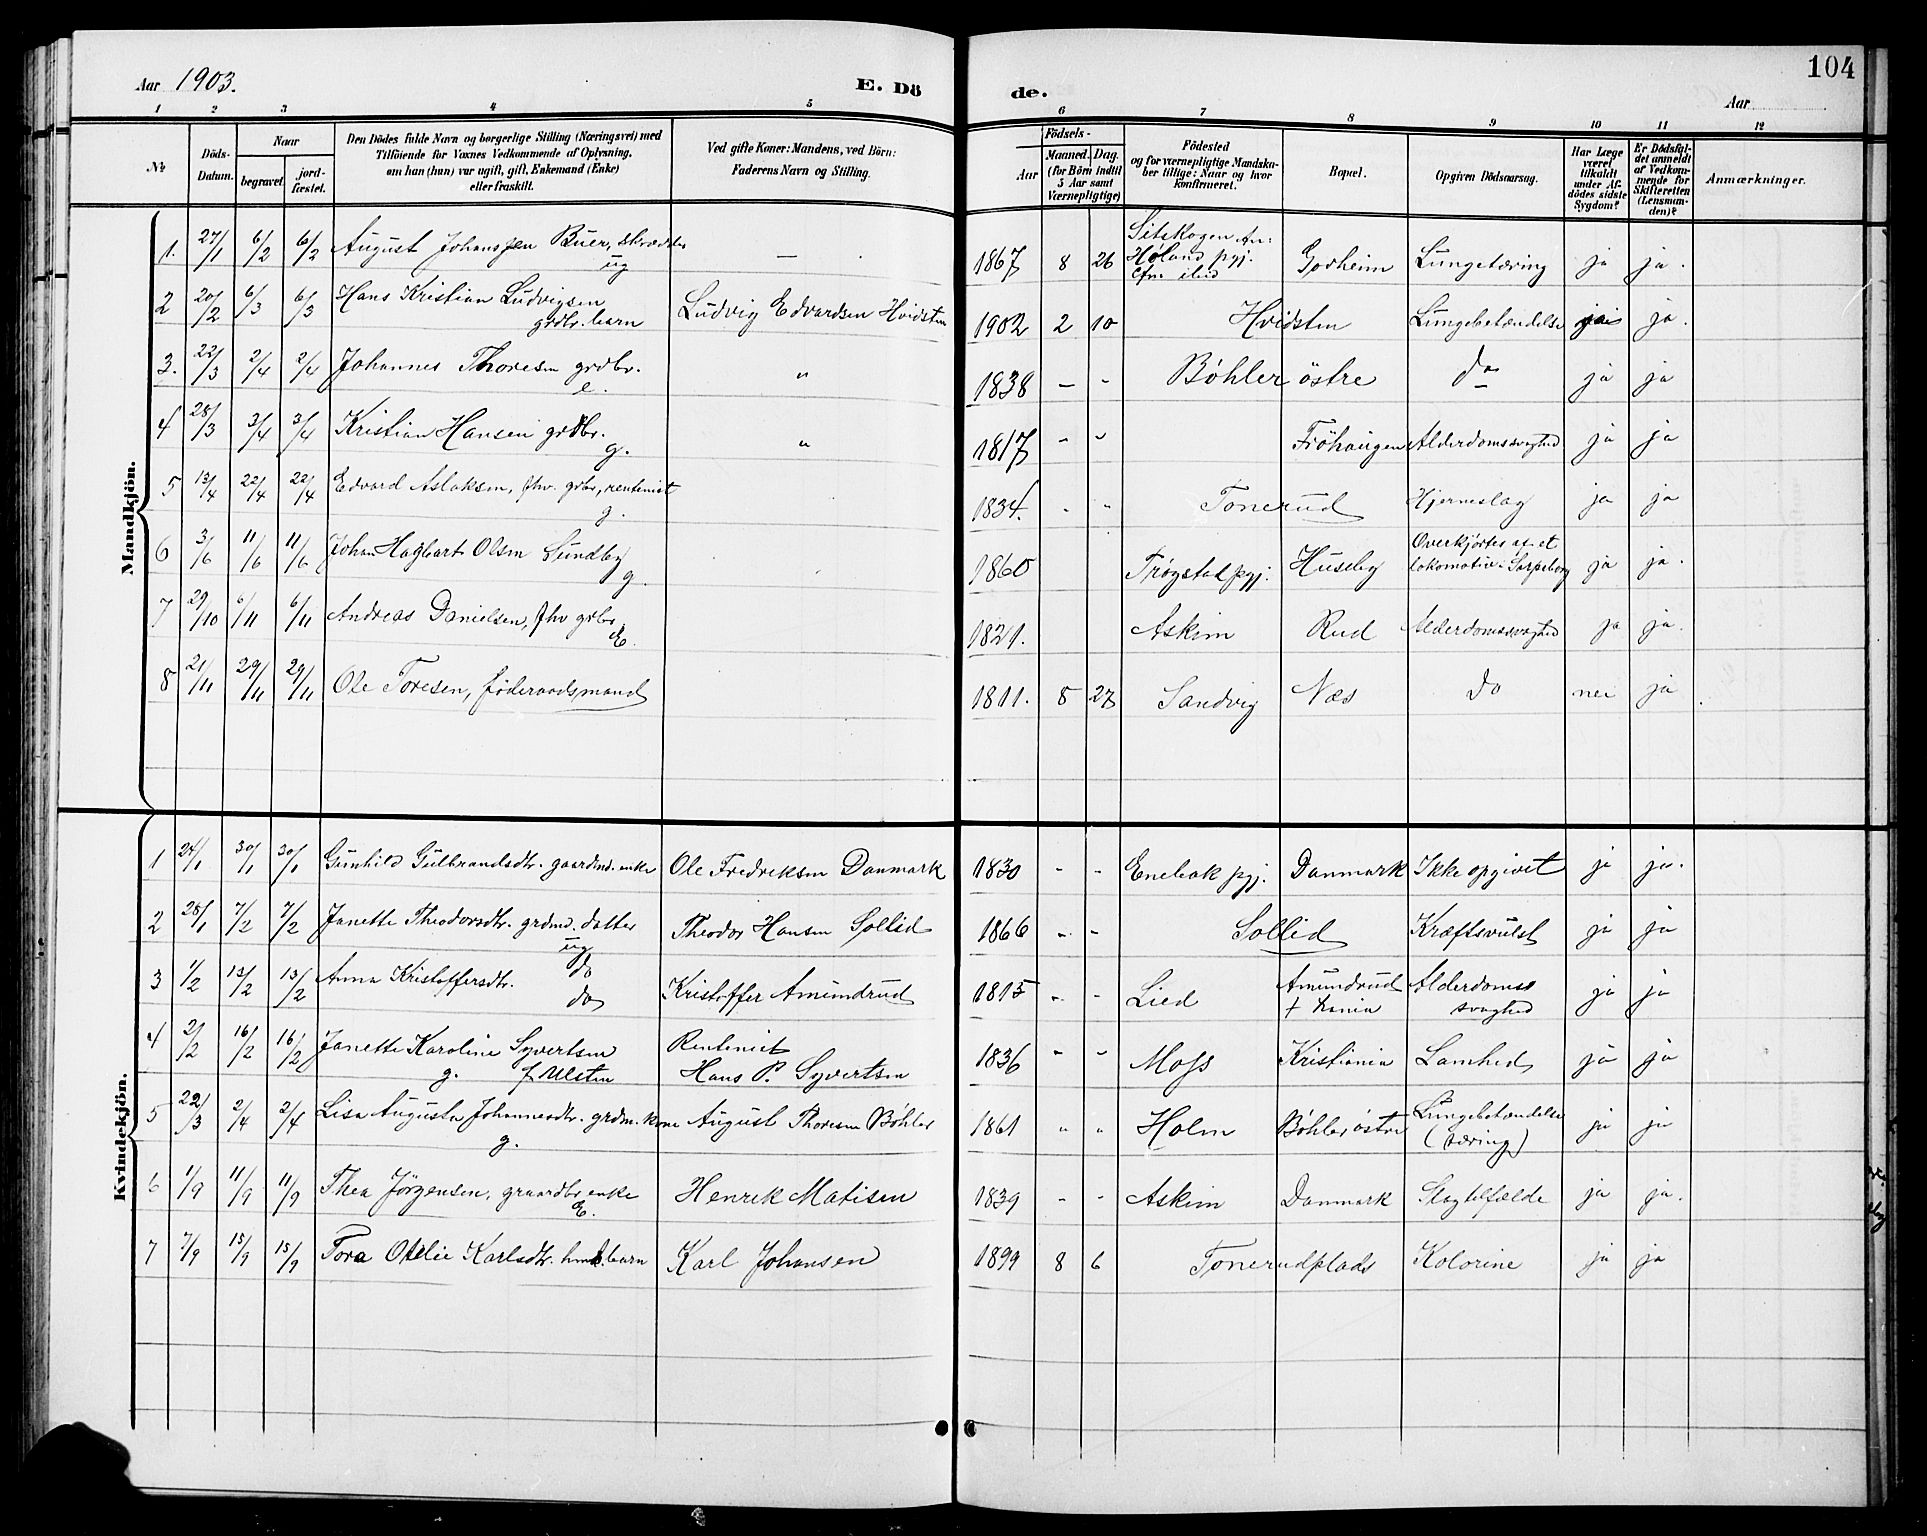 Aar 1903.
E. Dö
de.
Aar
104
1 2 3 4 5 6 7 8 9 10 11 12
№
Döds-Datum.
Naar
begravet.
jord-fæstet.
Den Dödes fulde Navn og borgerlige Stilling (Næringsvei) med
Tilföiende for Voxnes Vedkommende af Oplysning,
om han (hun) var ugift, gift, Enkemand (Enke)
eller fraskilt.
Ved gifte Koner: Mandens, ved Börn:
Faderens Navn og Stilling.
Födsels-
Aar
Maaned. Dag.
(for Börn indtil
5 Aar samt
Værnepligtige)
Födested
og for værnepligtige Mandska-
ber tillige: Naar og hvor
konfirmeret.
Bopæl.
Opgiven Dödsaarsag.
Har Læge
været
tilkaldt
under Af-
dödes sidste
Sygdom?
Er Dödsfal-
det anmeldt
af Vedkom-
mende for
Skifteretten
(Lensman-
den)?
Anmærkninger.
Mandkjön.
1. 27/1 6/2 6/2 August Johanssen Buer, skrædder ug — 1867 8 26 Setskogen An: Høland pgj. Gorheim Lungetæring ja ja.
2 20/2 6/3 6/3 Hans Kristian Ludvigsen grdbr. barn Ludvig Edvardsen Hvidsten 1902 2 10 Hvidsten Lungebetændelse ja.
3. 22/3 2/4 2/4 Johannes Thoresen grdbr. e. " 1838 — - Bøhler östre do ja ja
4 28/3 3/4 3/4 Kristian Hansen grdbr. g. " 1817 - - Fröhaugen Alderdomssvaghed ja ja
5 13/4 22/4 22/4 Edvard Aslaksen, fhv. grbr, rentenist g. 1834. - - Tonerud Hjerneslag ja ja
6 3/6 11/6 11/6 Johan Hagbart Olsen Sundby g. 1860 Trøgstad pgj. Huseby Overkjørtes af et lokomotiv i Sarpsborg ja ja.
7 29/10 6/11 6/11 Andreas Danielsen, fhv grbr. E. 1821. Askim Rud Alderdomssvaghed ja ja.
8 21/11 29/11 29/11 Ole Toresen, føderaadsmand 1811. 8 27 Sandvig Næs do nei ja
Kvindekjön.
1 24/1 30/1 30/1 Gunhild Gulbrandsdtr. gaardmd. enke Ole Fredriksen Danmark 1830 - - Enebak pgj. Danmark Ikke opgivet ja ja.
2 28/1 7/2 7/2 Janette Theodorsdtr. grdmd. datter ug Theodor Hansen Sollid 1866 - - Sollid Kræftsvulst ja ja
3 1/2 13/2 13/2 Anna Kristoffersdtr. do do Kristoffer Amundrud 1815 - - Lied Amundrud Alderdomssvaghed ja ja
4 2/2 16/2 16/2 Janette Karoline Syvertsen g. f Ulsten Rentenist Hans P. Syvertsen 1836 - - Moss Kristiania Lamhed ja ja
5 22/3 2/4 2/4 Lisa Augusta Johannesdtr. grdm. kone g. August Thoresen Bøhler 1861 " " Holm Bøhler østre Lungebetændelse (tæring) ja ja
6 1/9 11/9 11/9 Thea Jørgensen, graardbr. enke E. Henrik Matisen 1839 - - Askim Danmark Slagtilfælde ja ja.
7 7/9 15/9 15/9 Tora Otelie Karlsdtr. barn Karl Johansen 1899 8 6 Tonerudplads Kolorine ja ja